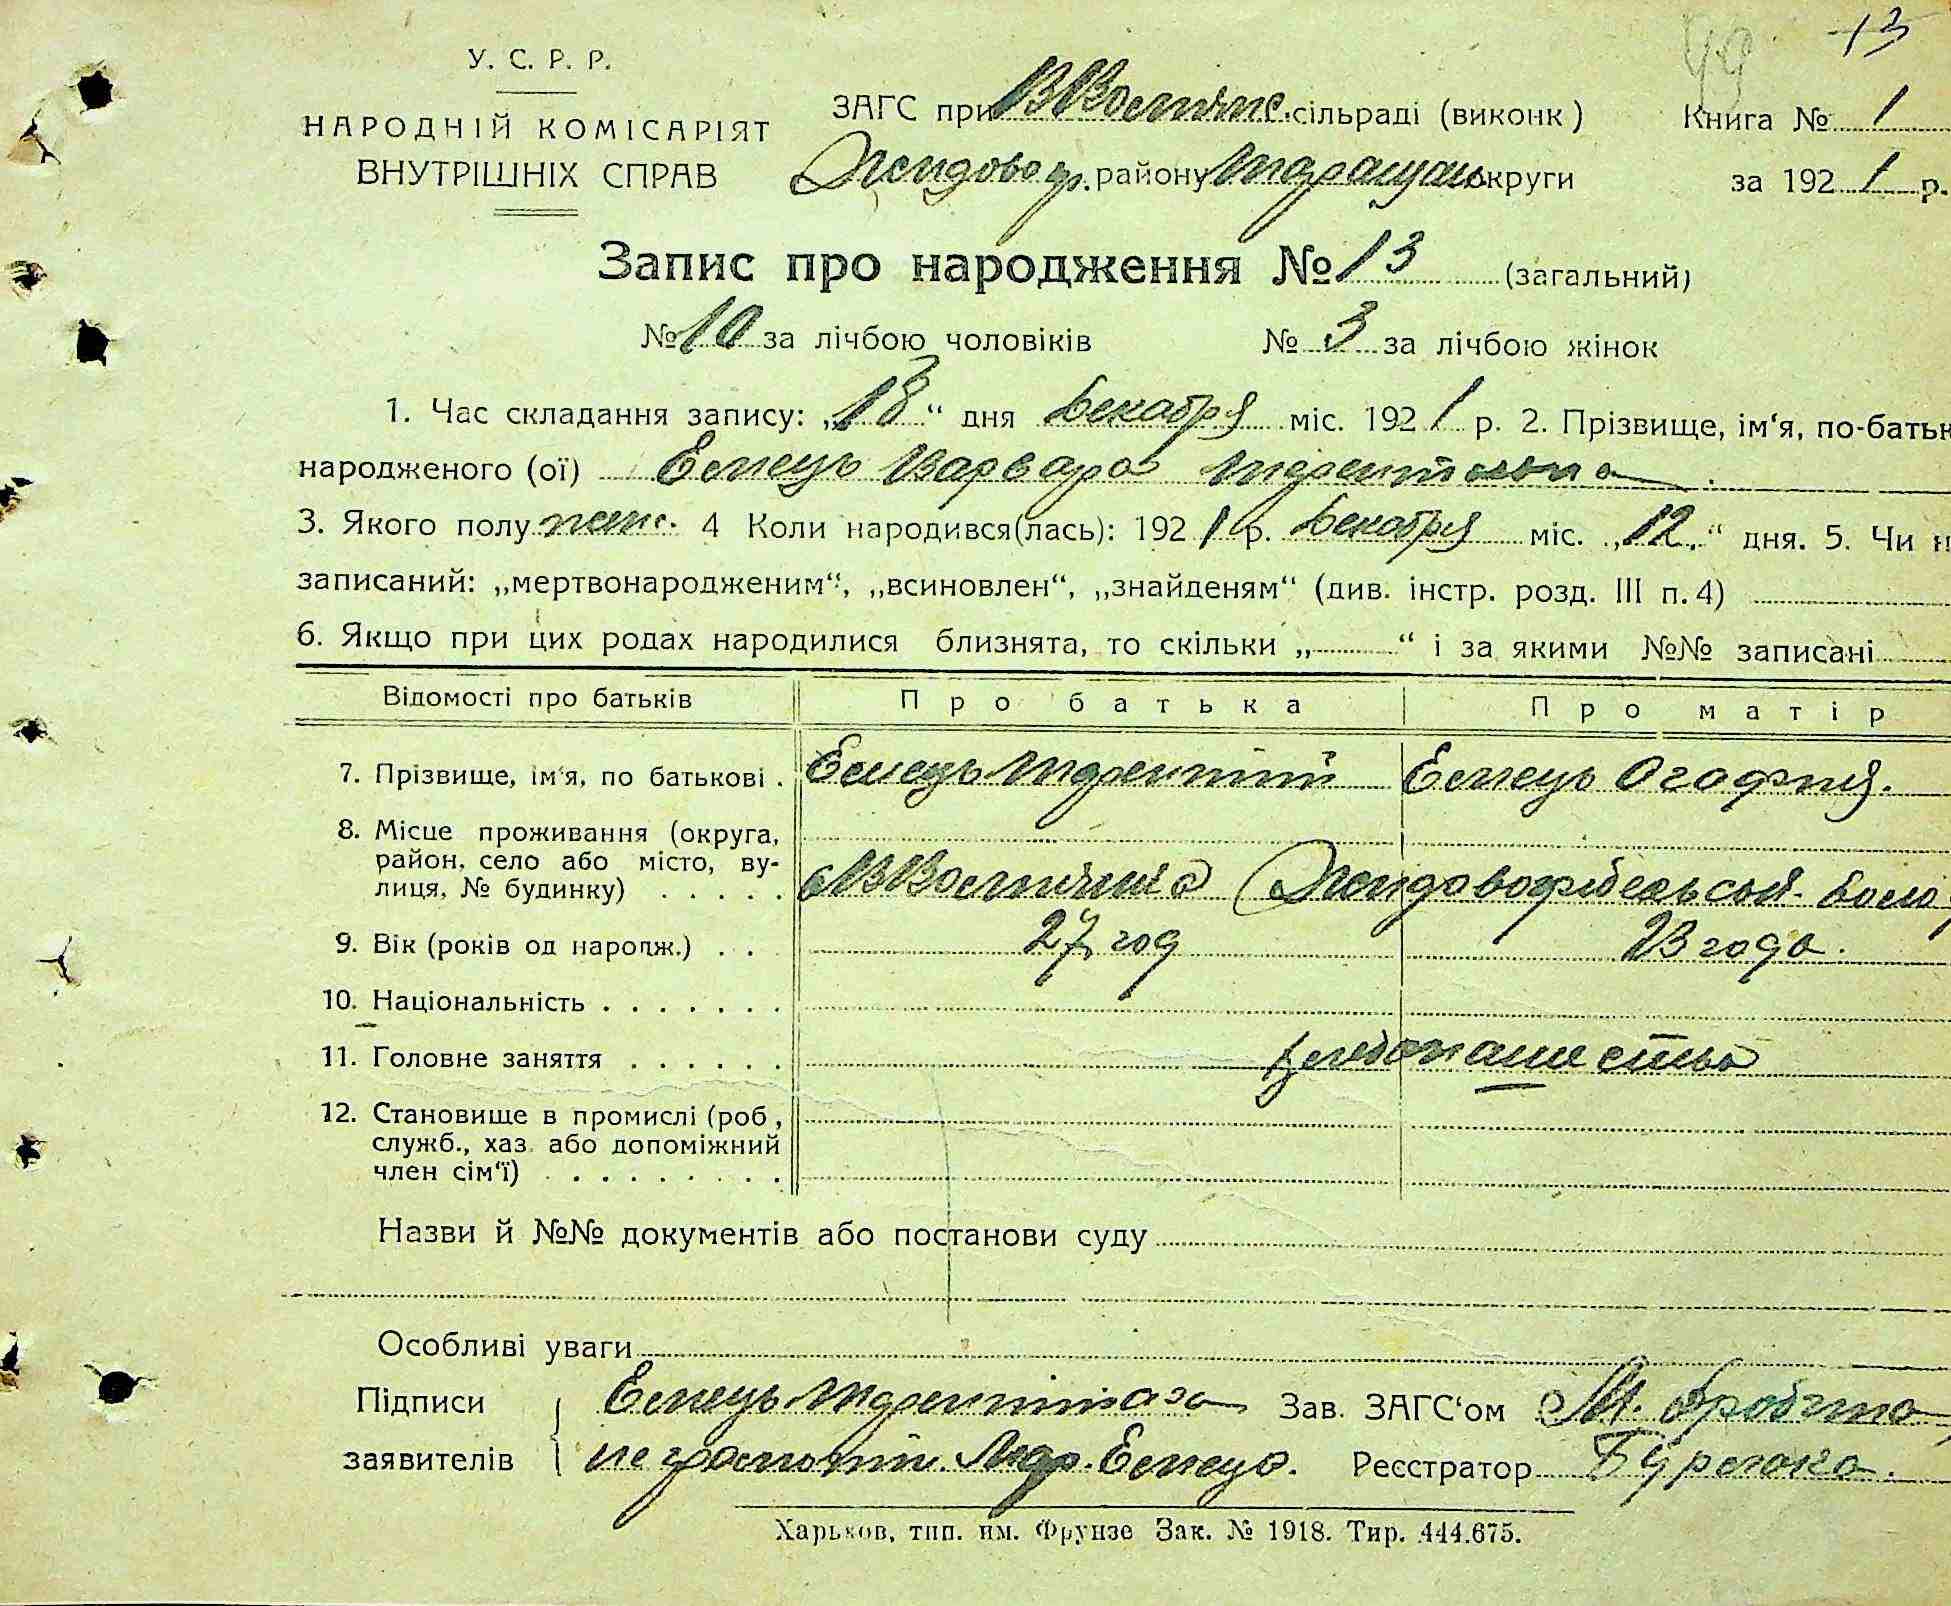 13
99
У. С. Р. Р.
НАРОДНІЙ КОМІСАРІЯТ
ВНУТРІШНІХ СПРАВ
ЗАГС при сільраді (виконк)
району округи
Книга № 1
за 1921 р.
Запис про народження № 13 (загальний)
№ 10 за лічбою чоловіків № 3 за лічбою жінок
1. Час складання запису: „18“ дня Декабря міс. 1921 р. 2. Прізвище, ім‘я, по-батьк
народженого (ої) Емець Варвара
3. Якого полу жен. 4 Коли народився(лась): 1921 р. Декабря міс. „12.“ дня. 5. Чи н
записаний: „мертвонародженим“, „всиновлен“, „знайденям“ (див. інстр. розд. III п. 4)
6. Якщо при цих родах народилися близнята, то скільки „ “ і за якими №№ записані
Відомості про батьків Про батька Про матір
7. Прізвище, ім‘я, по батькові . Емець Терентий Емець Агафия.
8. Місце проживання (округа,
район, село або місто, ву-
лиця, № будинку) . . . . .
9. Вік (років од народж.) . . 27 год 23 года.
10. Національність . . . . . . .
11. Головне заняття . . . . . . хлебопашество
12. Становище в промислі (роб,
служб., хаз. або допоміжний
член сім‘ї) . . . . . . . . .
Назви й №№ документів або постанови суду
Особливі уваги
Підписи Емець Зав. ЗАГС‘ом М.
заявителів Емець. Реєстратор
Харьков, тип. им. Фрунзе Зак. № 1918. Тир. 444.675.